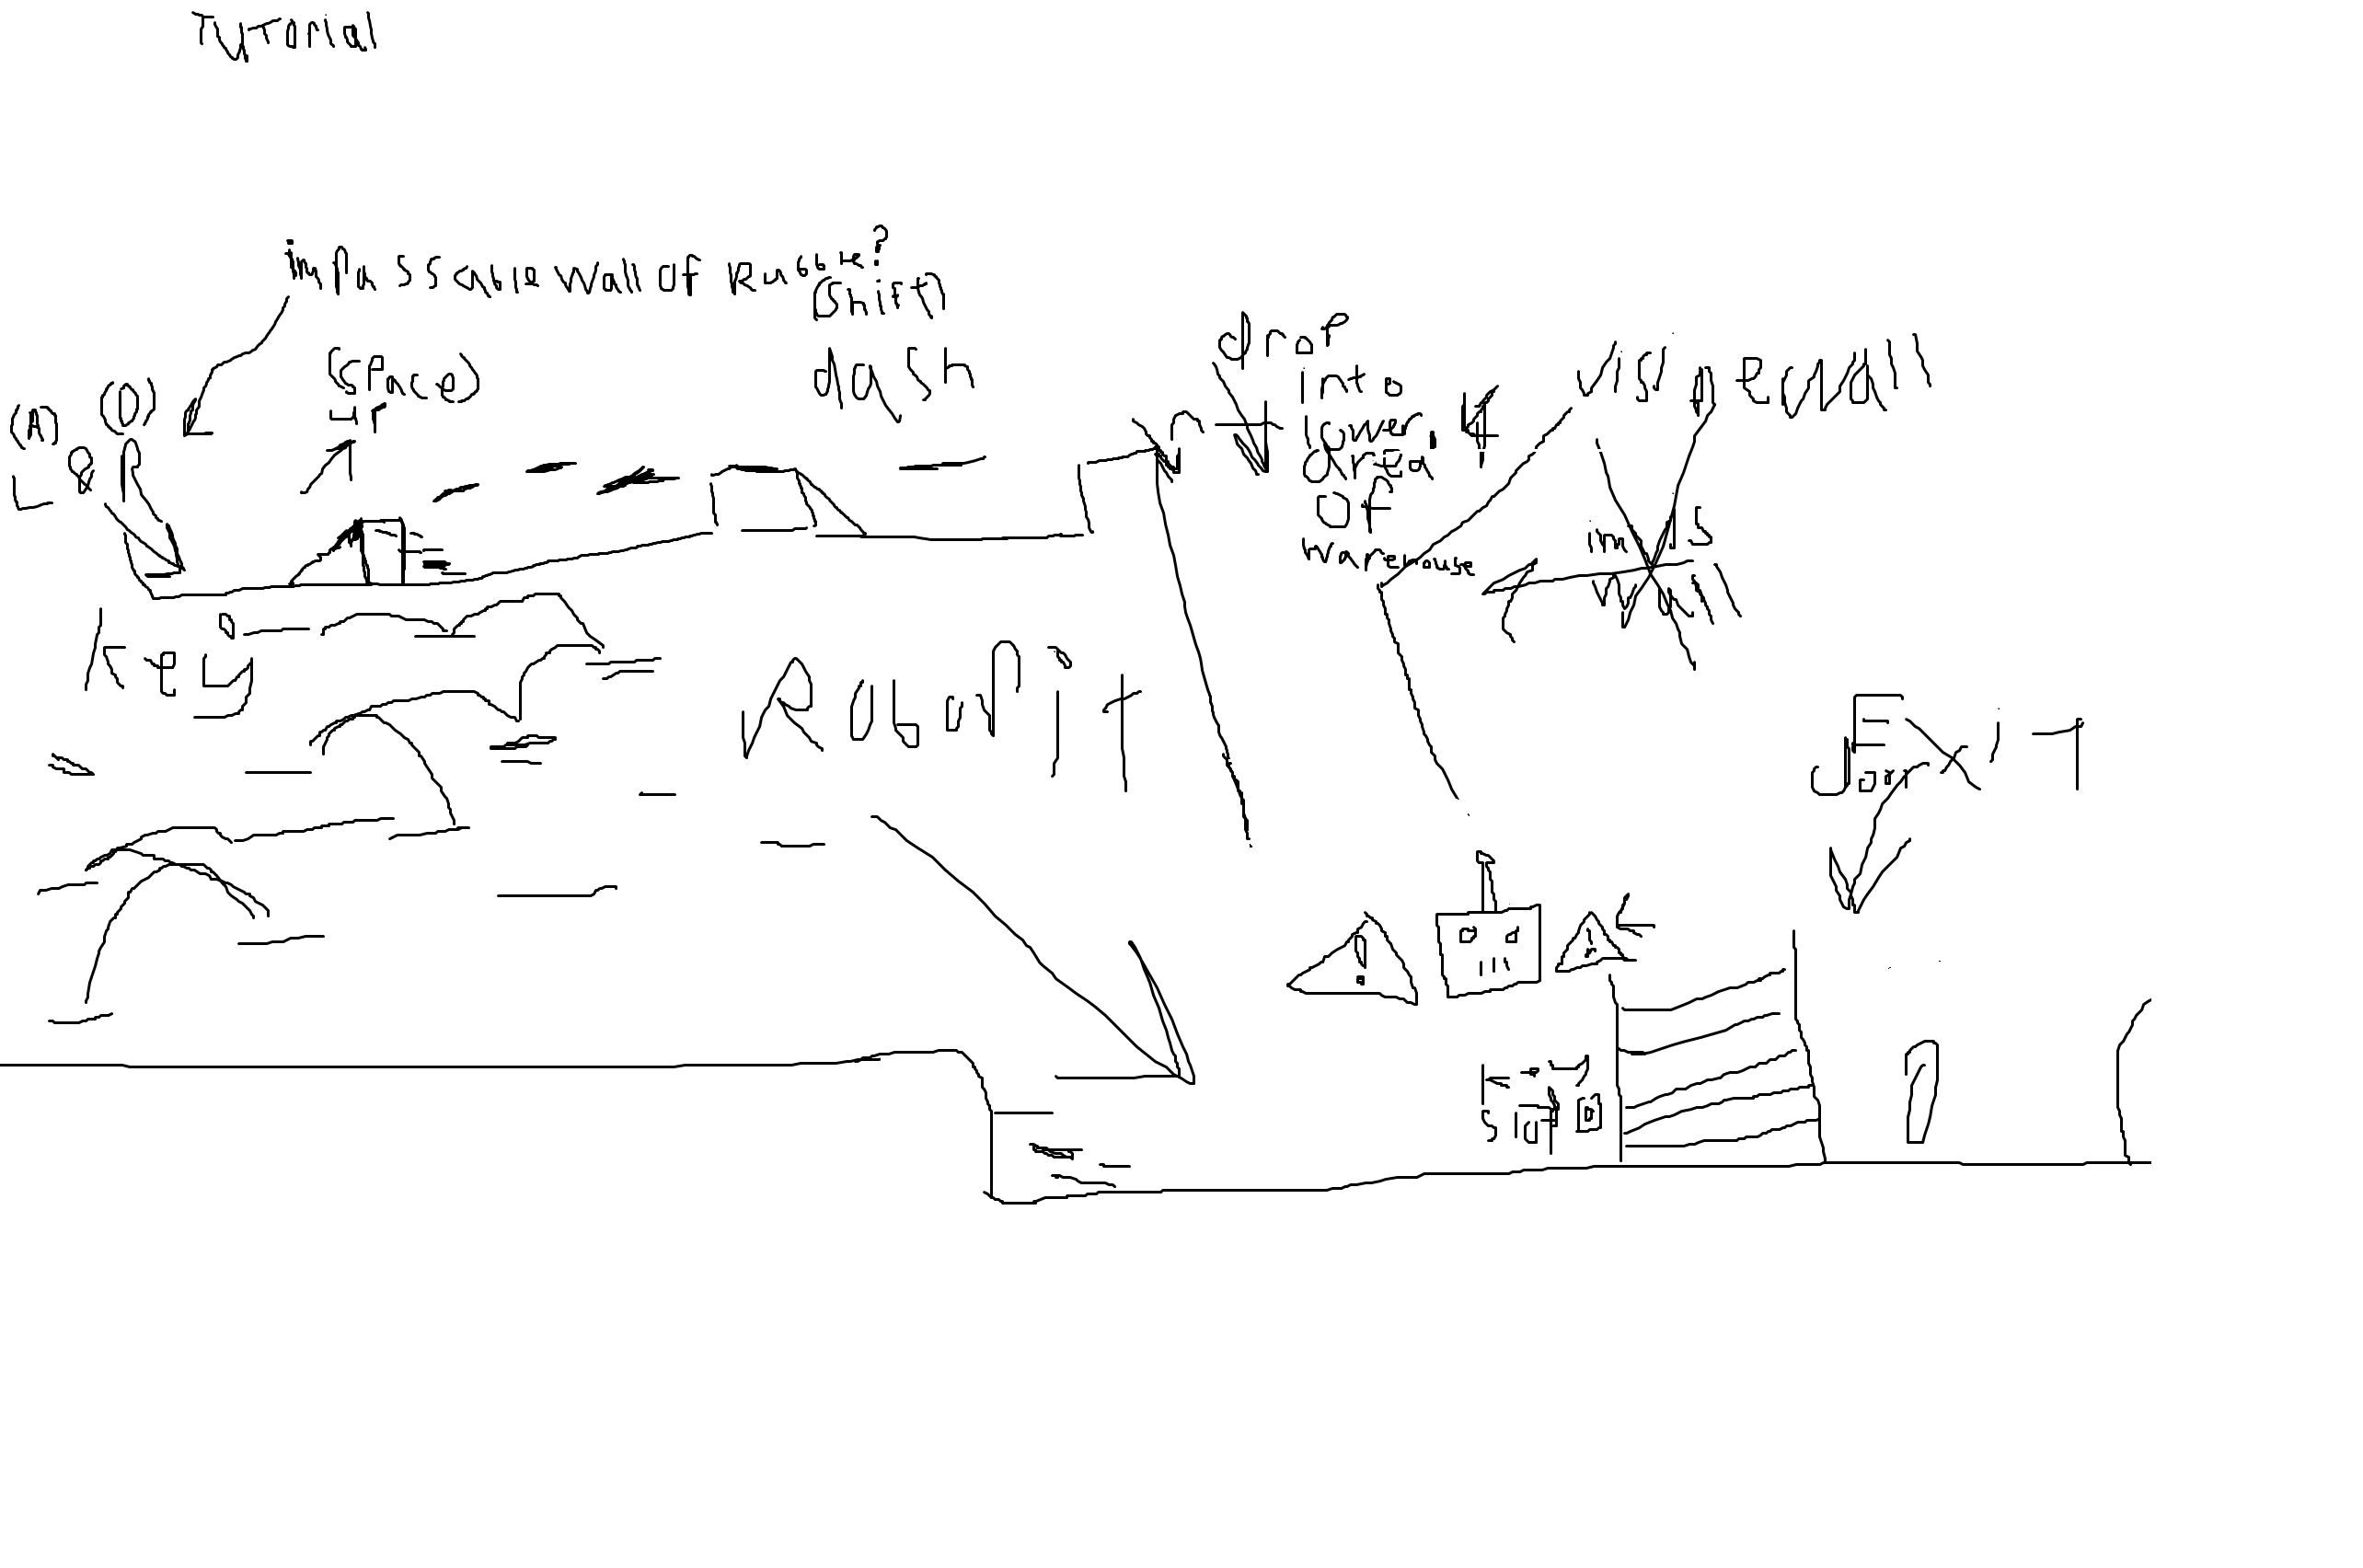 Tutorial
impassable wall of Rubble?
(Shift)
dash
(space)
up
(A) (D)
L & R
drop
into
lower
area
of
warehouse
vis wall
invis
wall
key
Robo Pit
Exit
door
!
!
key
slot